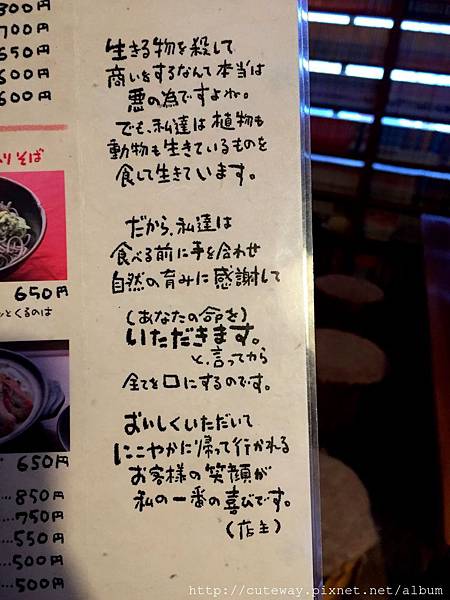 800円
700円
650円
600円
600円
りそば
650円
とくるのは
650円
850円
750円
550円
500円
500円
生きる物を殺して
商いをするなんて本当は
悪の為ですよね。
でも、私達は植物も
動物も生きているものを
食して生きています。
だから、私達は
食べる前に手を合わせ
自然の育みに感謝して
(あなたの命を)
いただきます。
と、言ってから
全てを口にするのです。
おいしくいただいて
にこやかに帰って行かれる
お客様の笑顔が
私の一番の喜びです。
(店主)
http://cuteway.pixnet.net/album